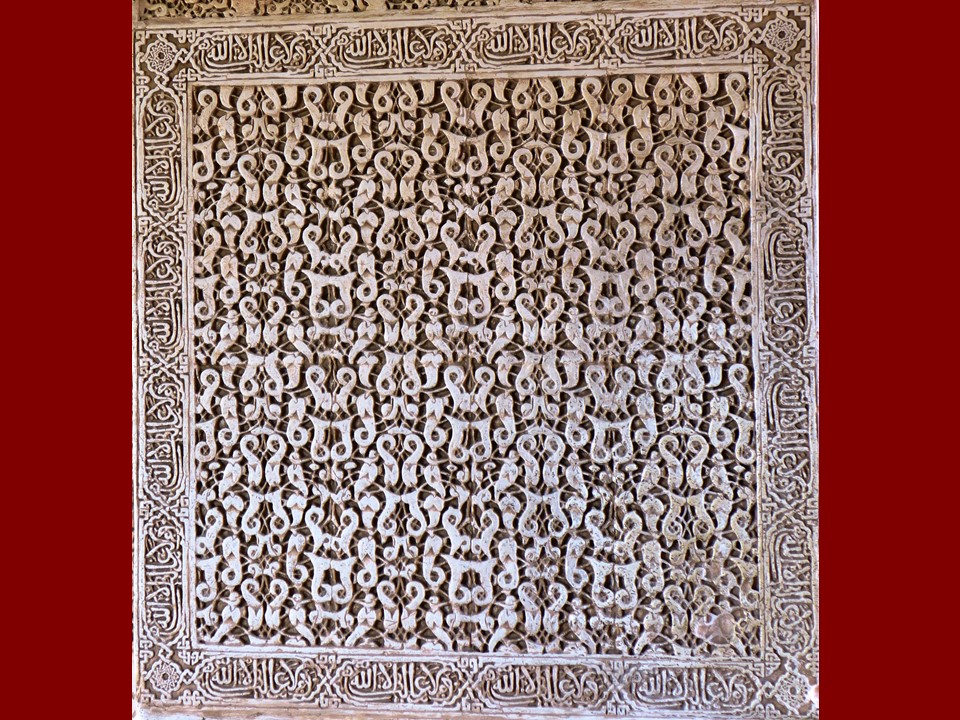 ولا غالب الا الله ولا غالب الا الله ولا غالب الا الله ولا غالب الا الله
ولا غالب الا الله ولا غالب الا الله ولا غالب الا الله ولا غالب الا الله
ولا غالب الا الله ولا غالب الا الله ولا غالب الا الله ولا غالب الا الله
ولا غالب الا الله ولا غالب الا الله ولا غالب الا الله ولا غالب الا الله